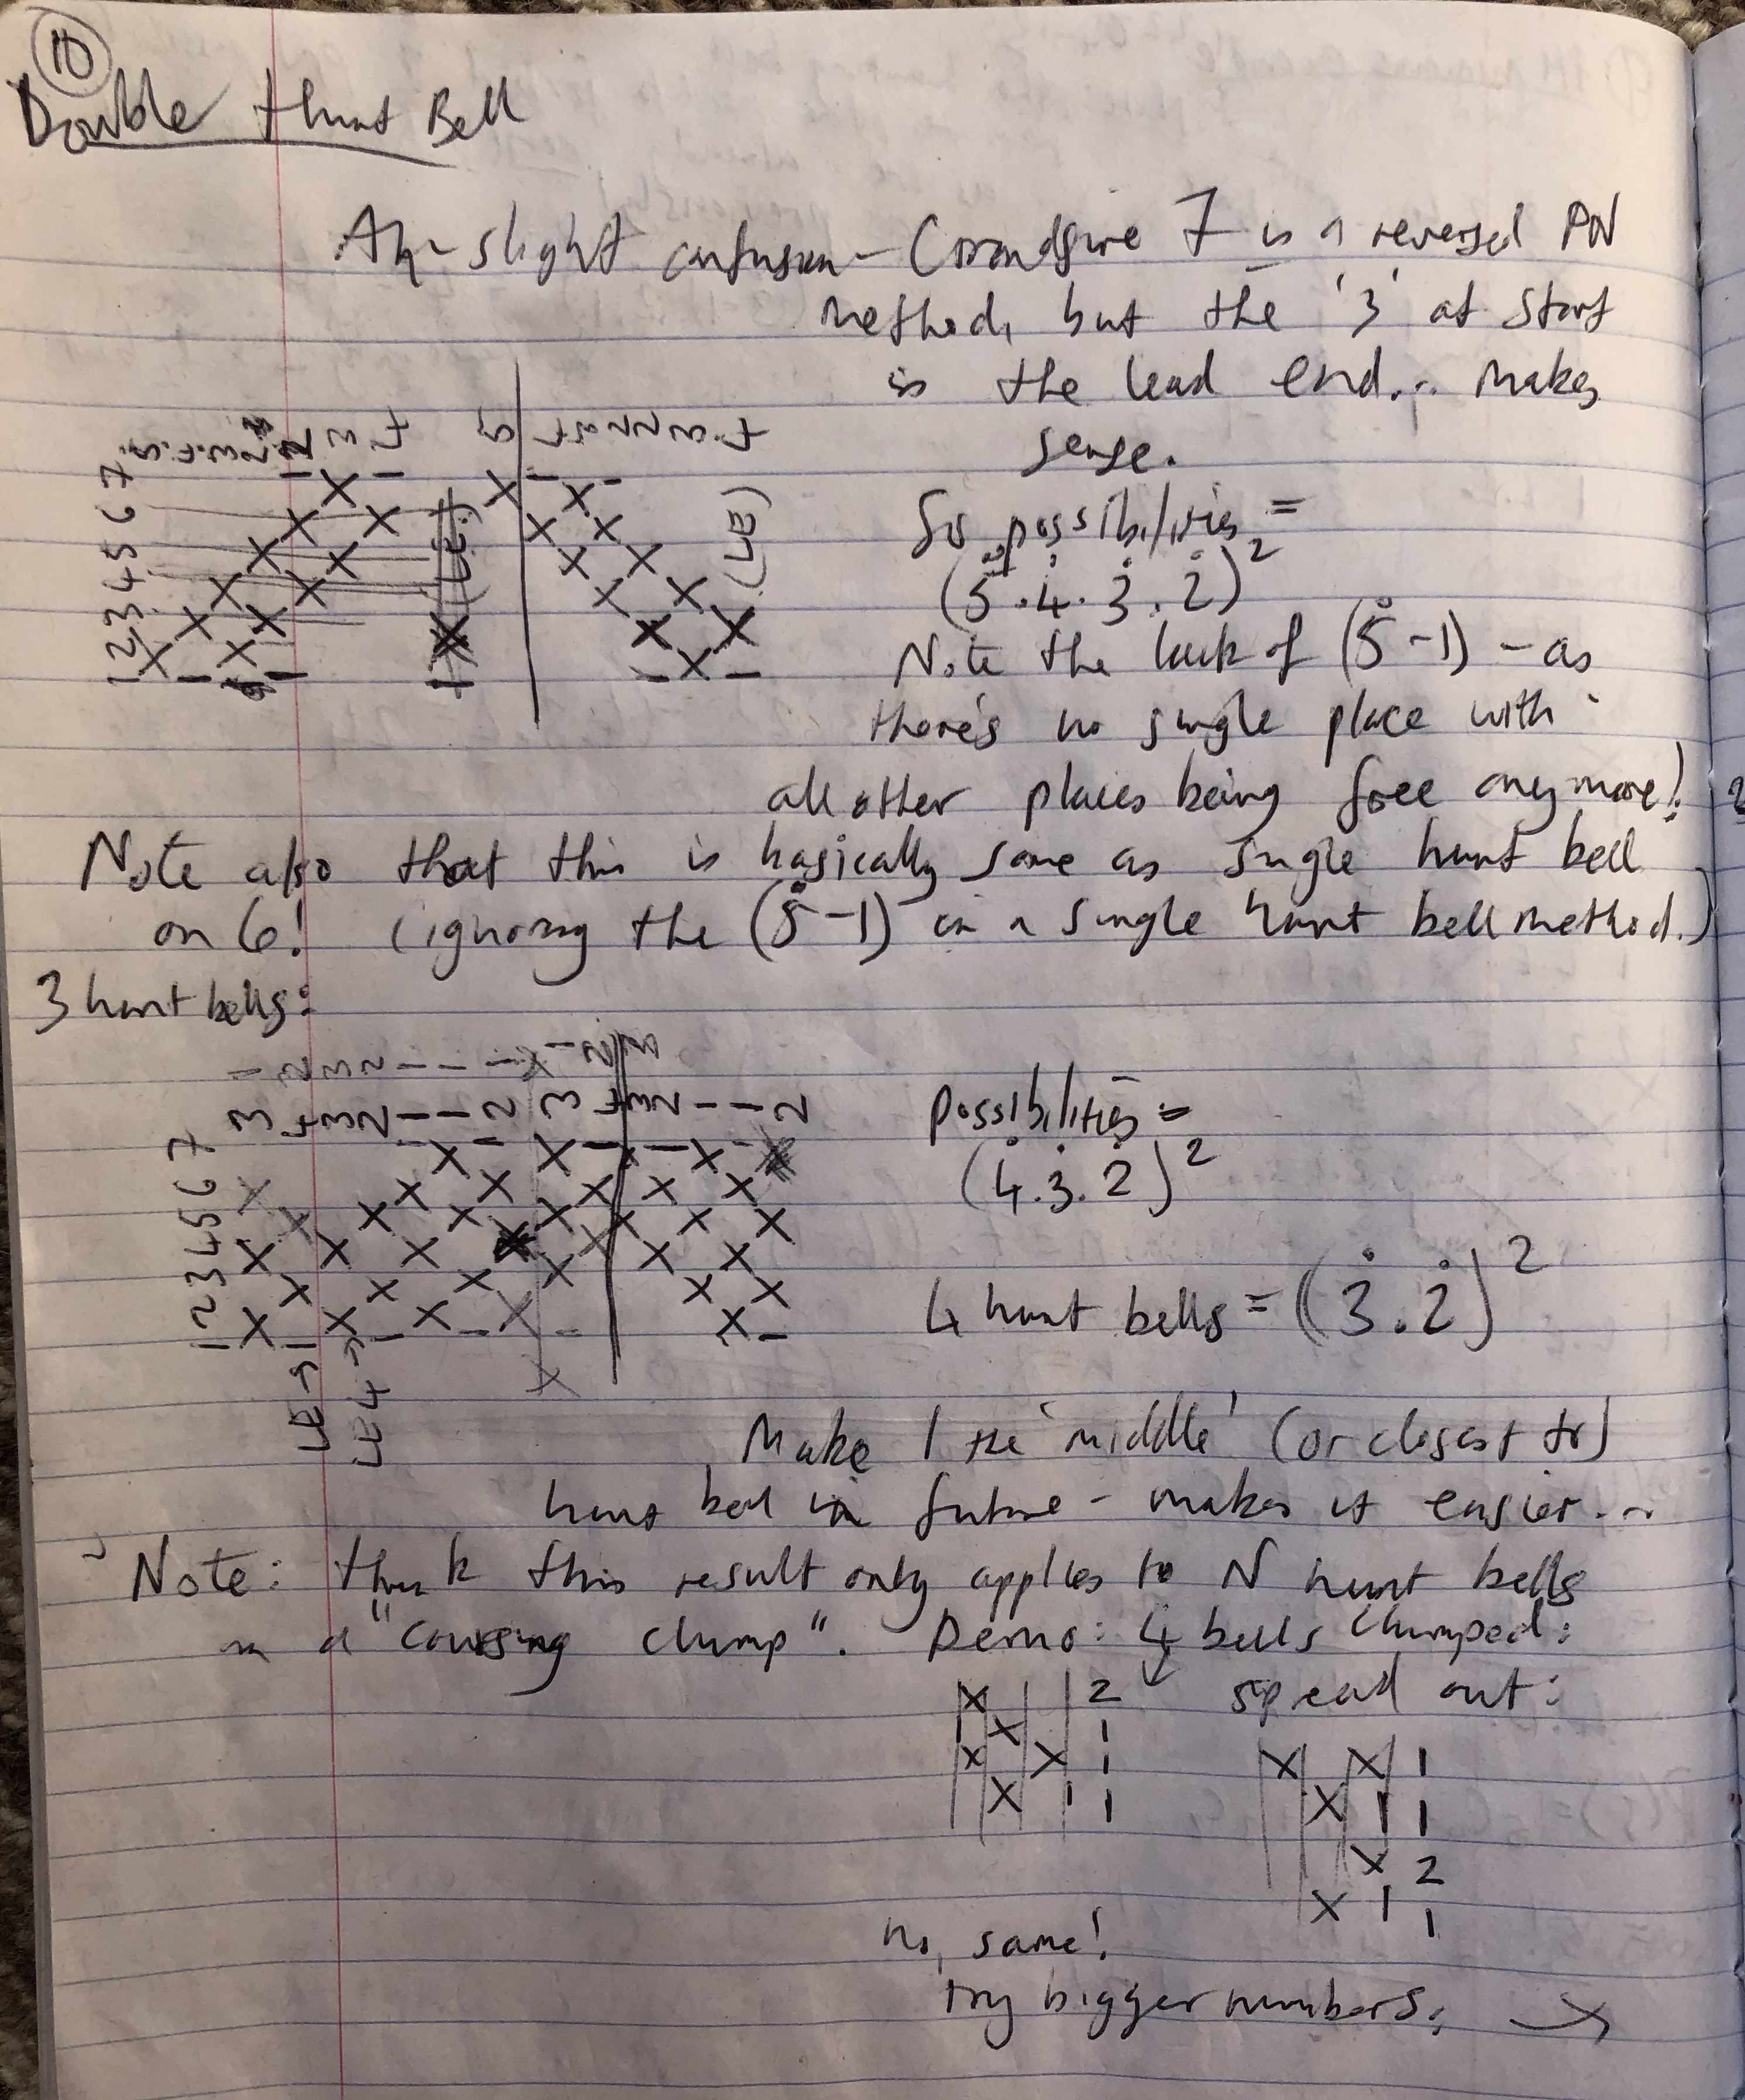 10
Double Hunt Bell
Ah - slight confusion - Grandsire 7 is a reversed PN
method, but the '3' at start
is the lead end... makes
sense.
1 2 3 4 5 6 7
(LE)
(LE)
So possibilities =
(5̇.4̇.3̇.2̇)²
Note the lack of (5̇-1) - as
there's no single place with
all other places being free anymore!
Note also that this is basically same as single hunt bell
on 6! (ignoring the (5̇-1) in a single hunt bell method.)
3 hunt bells:
1 2 3 4 5 6 7
possibilities =
(4̇.3̇.2̇)²
4 hunt bells = (3̇.2̇)²
LE →
LE →
Make 1 the 'middle' (or closest to)
hunt bell in future - makes it easier...
Note: think this result only applies to N hunt bells
in a "coursing clump". Demo: 4 bells clumped:
spread out:
X 2
X 1
X X 1
X 1 1
X X 1
X 1 1
X 2
X 1 1
no, same!
try bigger numbers: →